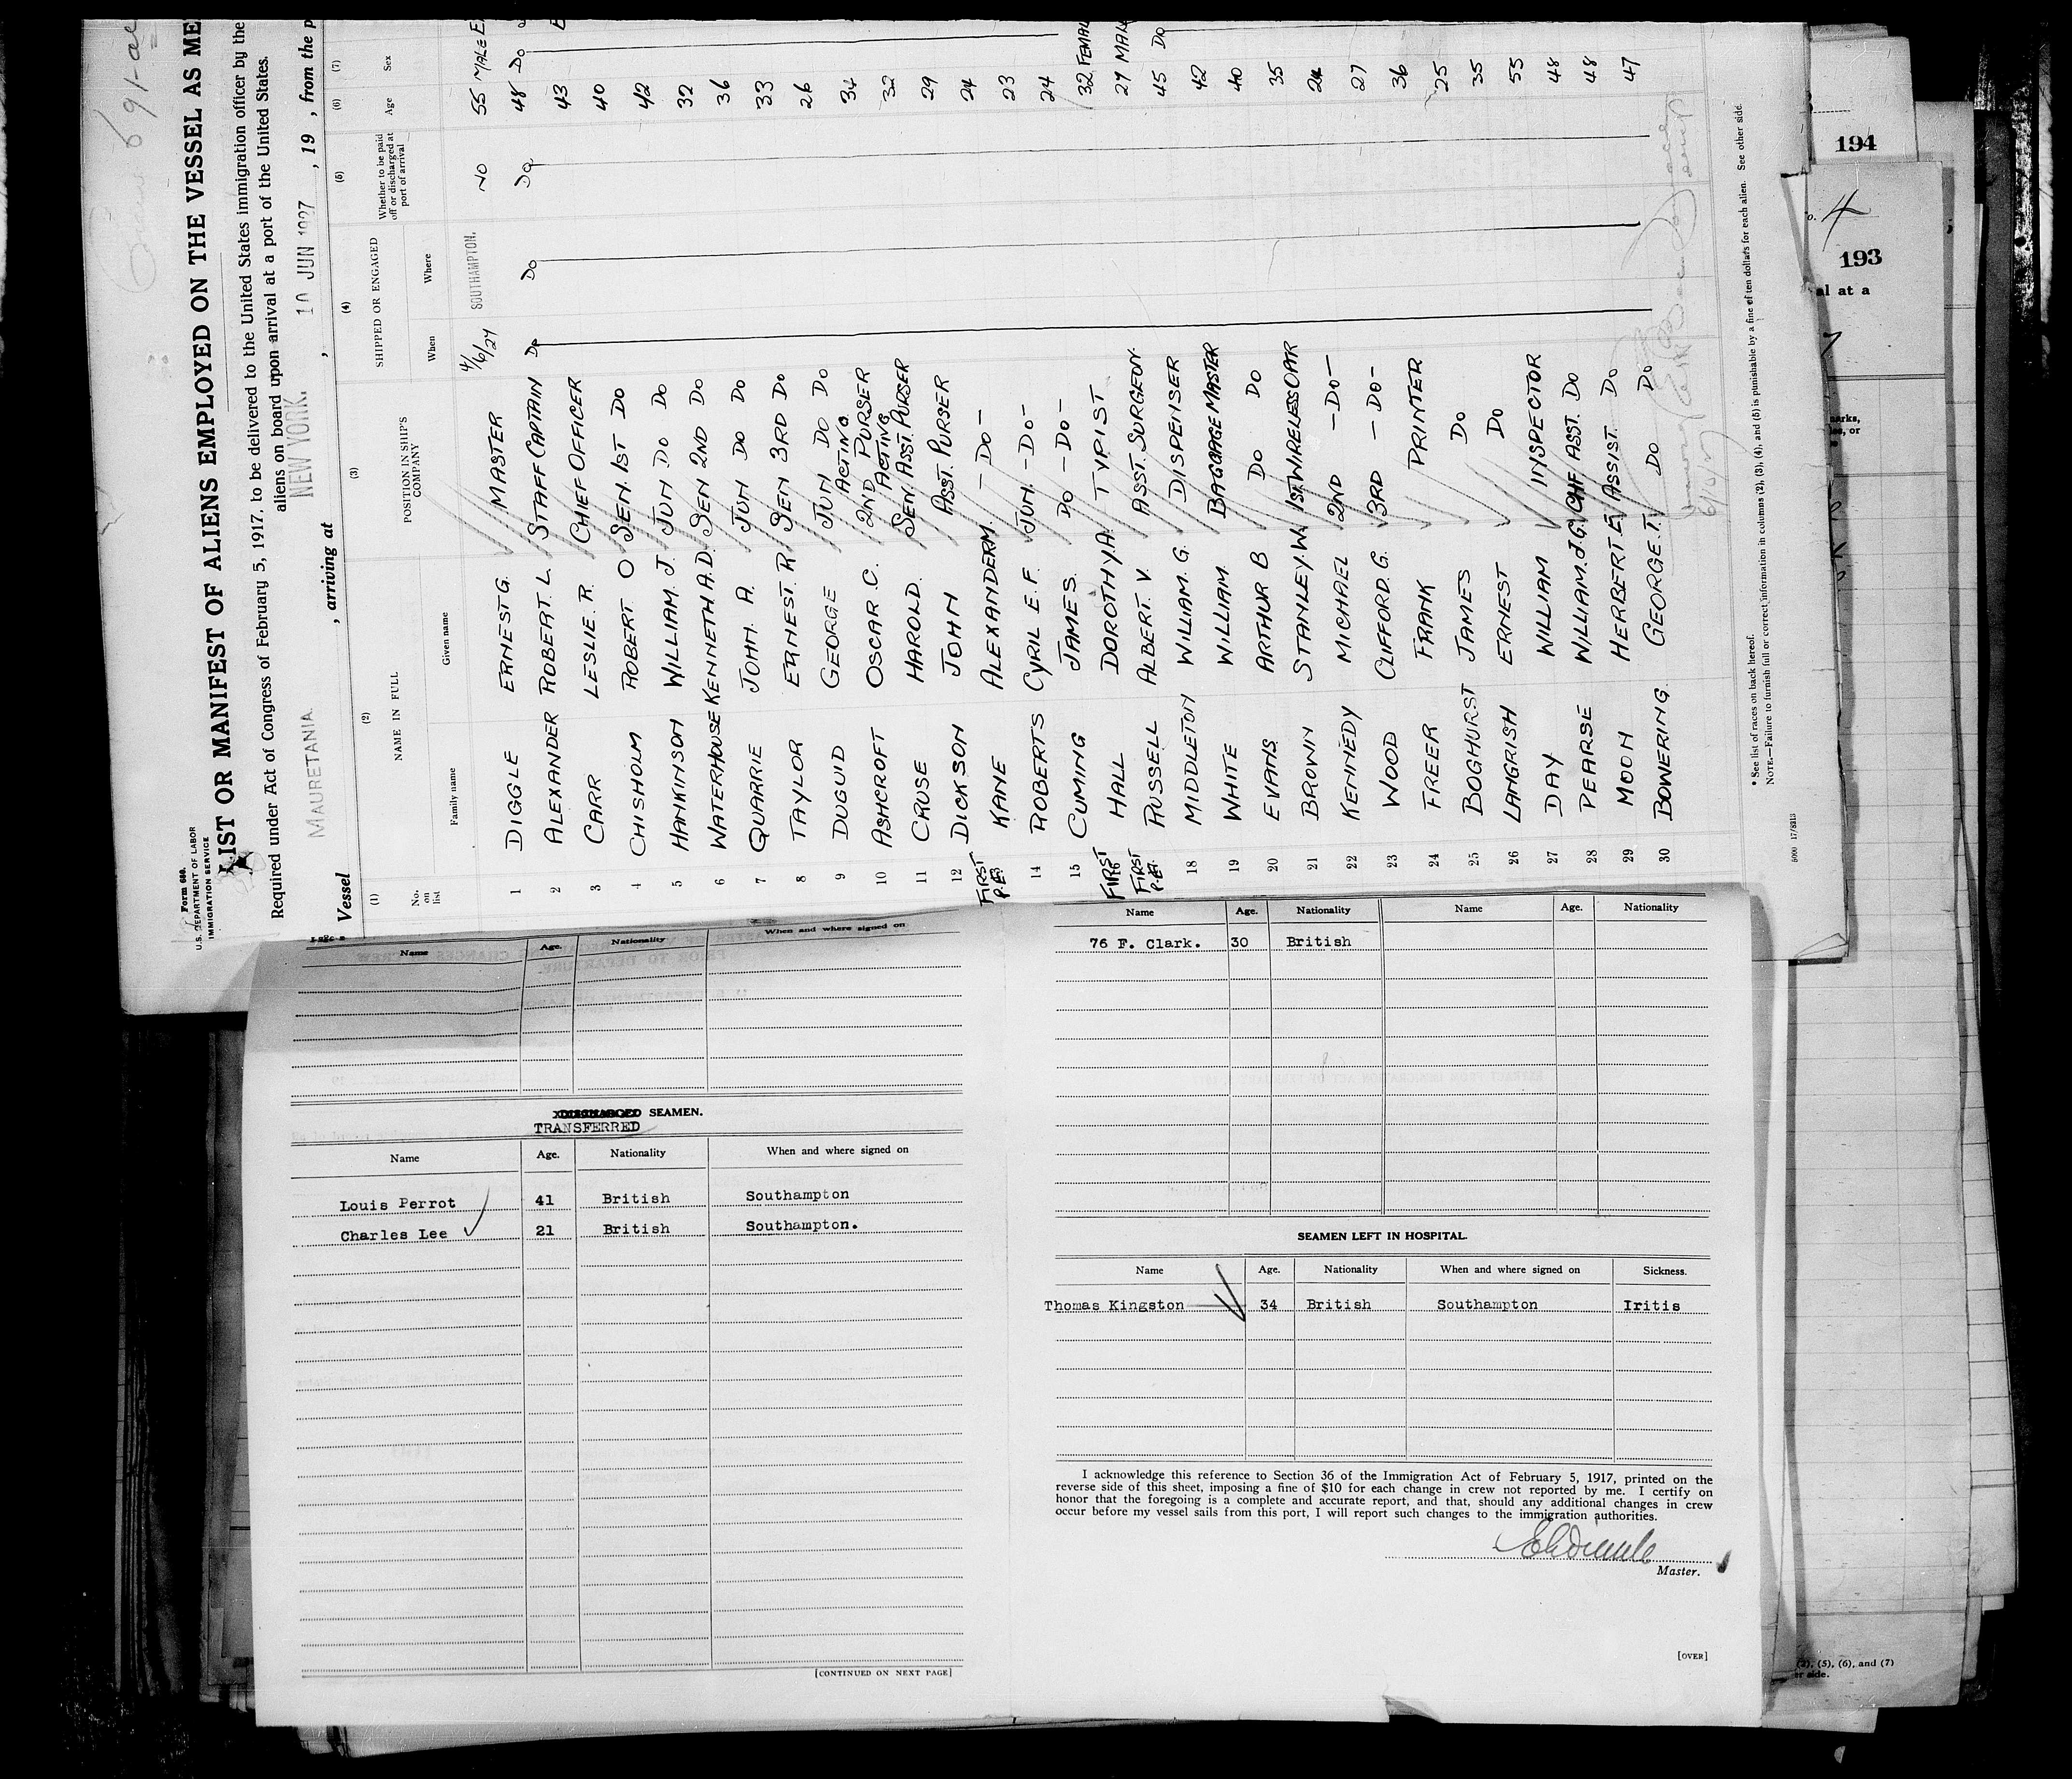 Form 680.
U.S. DEPARTMENT OF LABOR
IMMIGRATION SERVICE
LIST OR MANIFEST OF ALIENS EMPLOYED ON THE VESSEL AS ME
Required under Act of Congress of February 5, 1917, to be delivered to the United States immigration officer by the
aliens on board upon arrival at a port of the United States.
Vessel MAURETANIA. , arriving at NEW YORK. , 10 JUN 1927 , 19 , from the p
(1) (2) (3) (4) (5) (6) (7)
No. on list NAME IN FULL POSITION IN SHIP'S COMPANY SHIPPED OR ENGAGED Whether to be paid off or discharged at port of arrival Age Sex
Family name Given name When Where
1 DIGGLE ERNEST G. MASTER 4/6/27 SOUTHAMPTON. NO 55 MALE
2 ALEXANDER ROBERT. L. STAFF CAPTAIN Do Do Do 48 Do
3 CARR LESLIE. R. CHIEF OFFICER 43
4 CHISHOLM ROBERT O SEN. 1ST DO 40
5 HANKINSON WILLIAM. J. JUN DO DO 42
6 WATERHOUSE KENNETH A.D. SEN 2ND DO 32
7 QUARRIE JOHN. A. JUN DO DO 36
8 TAYLOR ERNEST. R SEN 3RD DO 33
9 DUGUID GEORGE JUN DO DO 26
10 ASHCROFT OSCAR. C. ACTING 2ND PURSER 34
11 CRUSE HAROLD. ACTING SEN. ASST. PURSER 32
12 DICKSON JOHN ASST. PURSER 29
FIRST P.E. KANE ALEXANDER M. - DO - 24
14 ROBERTS CYRIL E. F. JUN. - DO - 23
15 CUMING JAMES. DO - DO - 24
FIRST HALL DOROTHY A. TYPIST 32 FEMALE
FIRST P.E. RUSSELL ALBERT. V. ASST. SURGEON. 27 MALE
18 MIDDLETON WILLIAM. G. DISPENSER 45 Do
19 WHITE WILLIAM. BAGGAGE MASTER 42
20 EVANS ARTHUR B DO DO 40
21 BROWN STANLEY. W. 1ST. WIRELESS OPR 35
22 KENNEDY MICHAEL 2ND - DO - 24
23 WOOD CLIFFORD. G. 3RD - DO - 27
24 FREER FRANK PRINTER 36
25 BOGHURST JAMES DO 25
26 LANGRISH ERNEST DO 35
27 DAY WILLIAM INSPECTOR 55
28 PEARSE WILLIAM. J. G. CHF ASST. DO 48
29 MOON HERBERT E. ASSIST. DO 48
30 BOWERING. GEORGE. T. DO DO 47
* See list of races on back hereof.
NOTE.—Failure to furnish full or correct information in columns (2), (3), (4), and (5) is punishable by a fine of ten dollars for each alien. See other side.
194
4
193
al at a
Name Age. Nationality When and where signed on
DISCHARGED SEAMEN.
TRANSFERRED
Name Age. Nationality When and where signed on
Louis Perrot 41 British Southampton
Charles Lee 21 British Southampton.
[CONTINUED ON NEXT PAGE]
Name Age. Nationality Name Age. Nationality
76 F. Clark. 30 British
SEAMEN LEFT IN HOSPITAL.
Name Age. Nationality When and where signed on Sickness.
Thomas Kingston 34 British Southampton Iritis
I acknowledge this reference to Section 36 of the Immigration Act of February 5, 1917, printed on the
reverse side of this sheet, imposing a fine of $10 for each change in crew not reported by me. I certify on
honor that the foregoing is a complete and accurate report, and that, should any additional changes in crew
occur before my vessel sails from this port, I will report such changes to the immigration authorities.
Master.
[OVER]
(2), (5), (6), and (7)
er side.